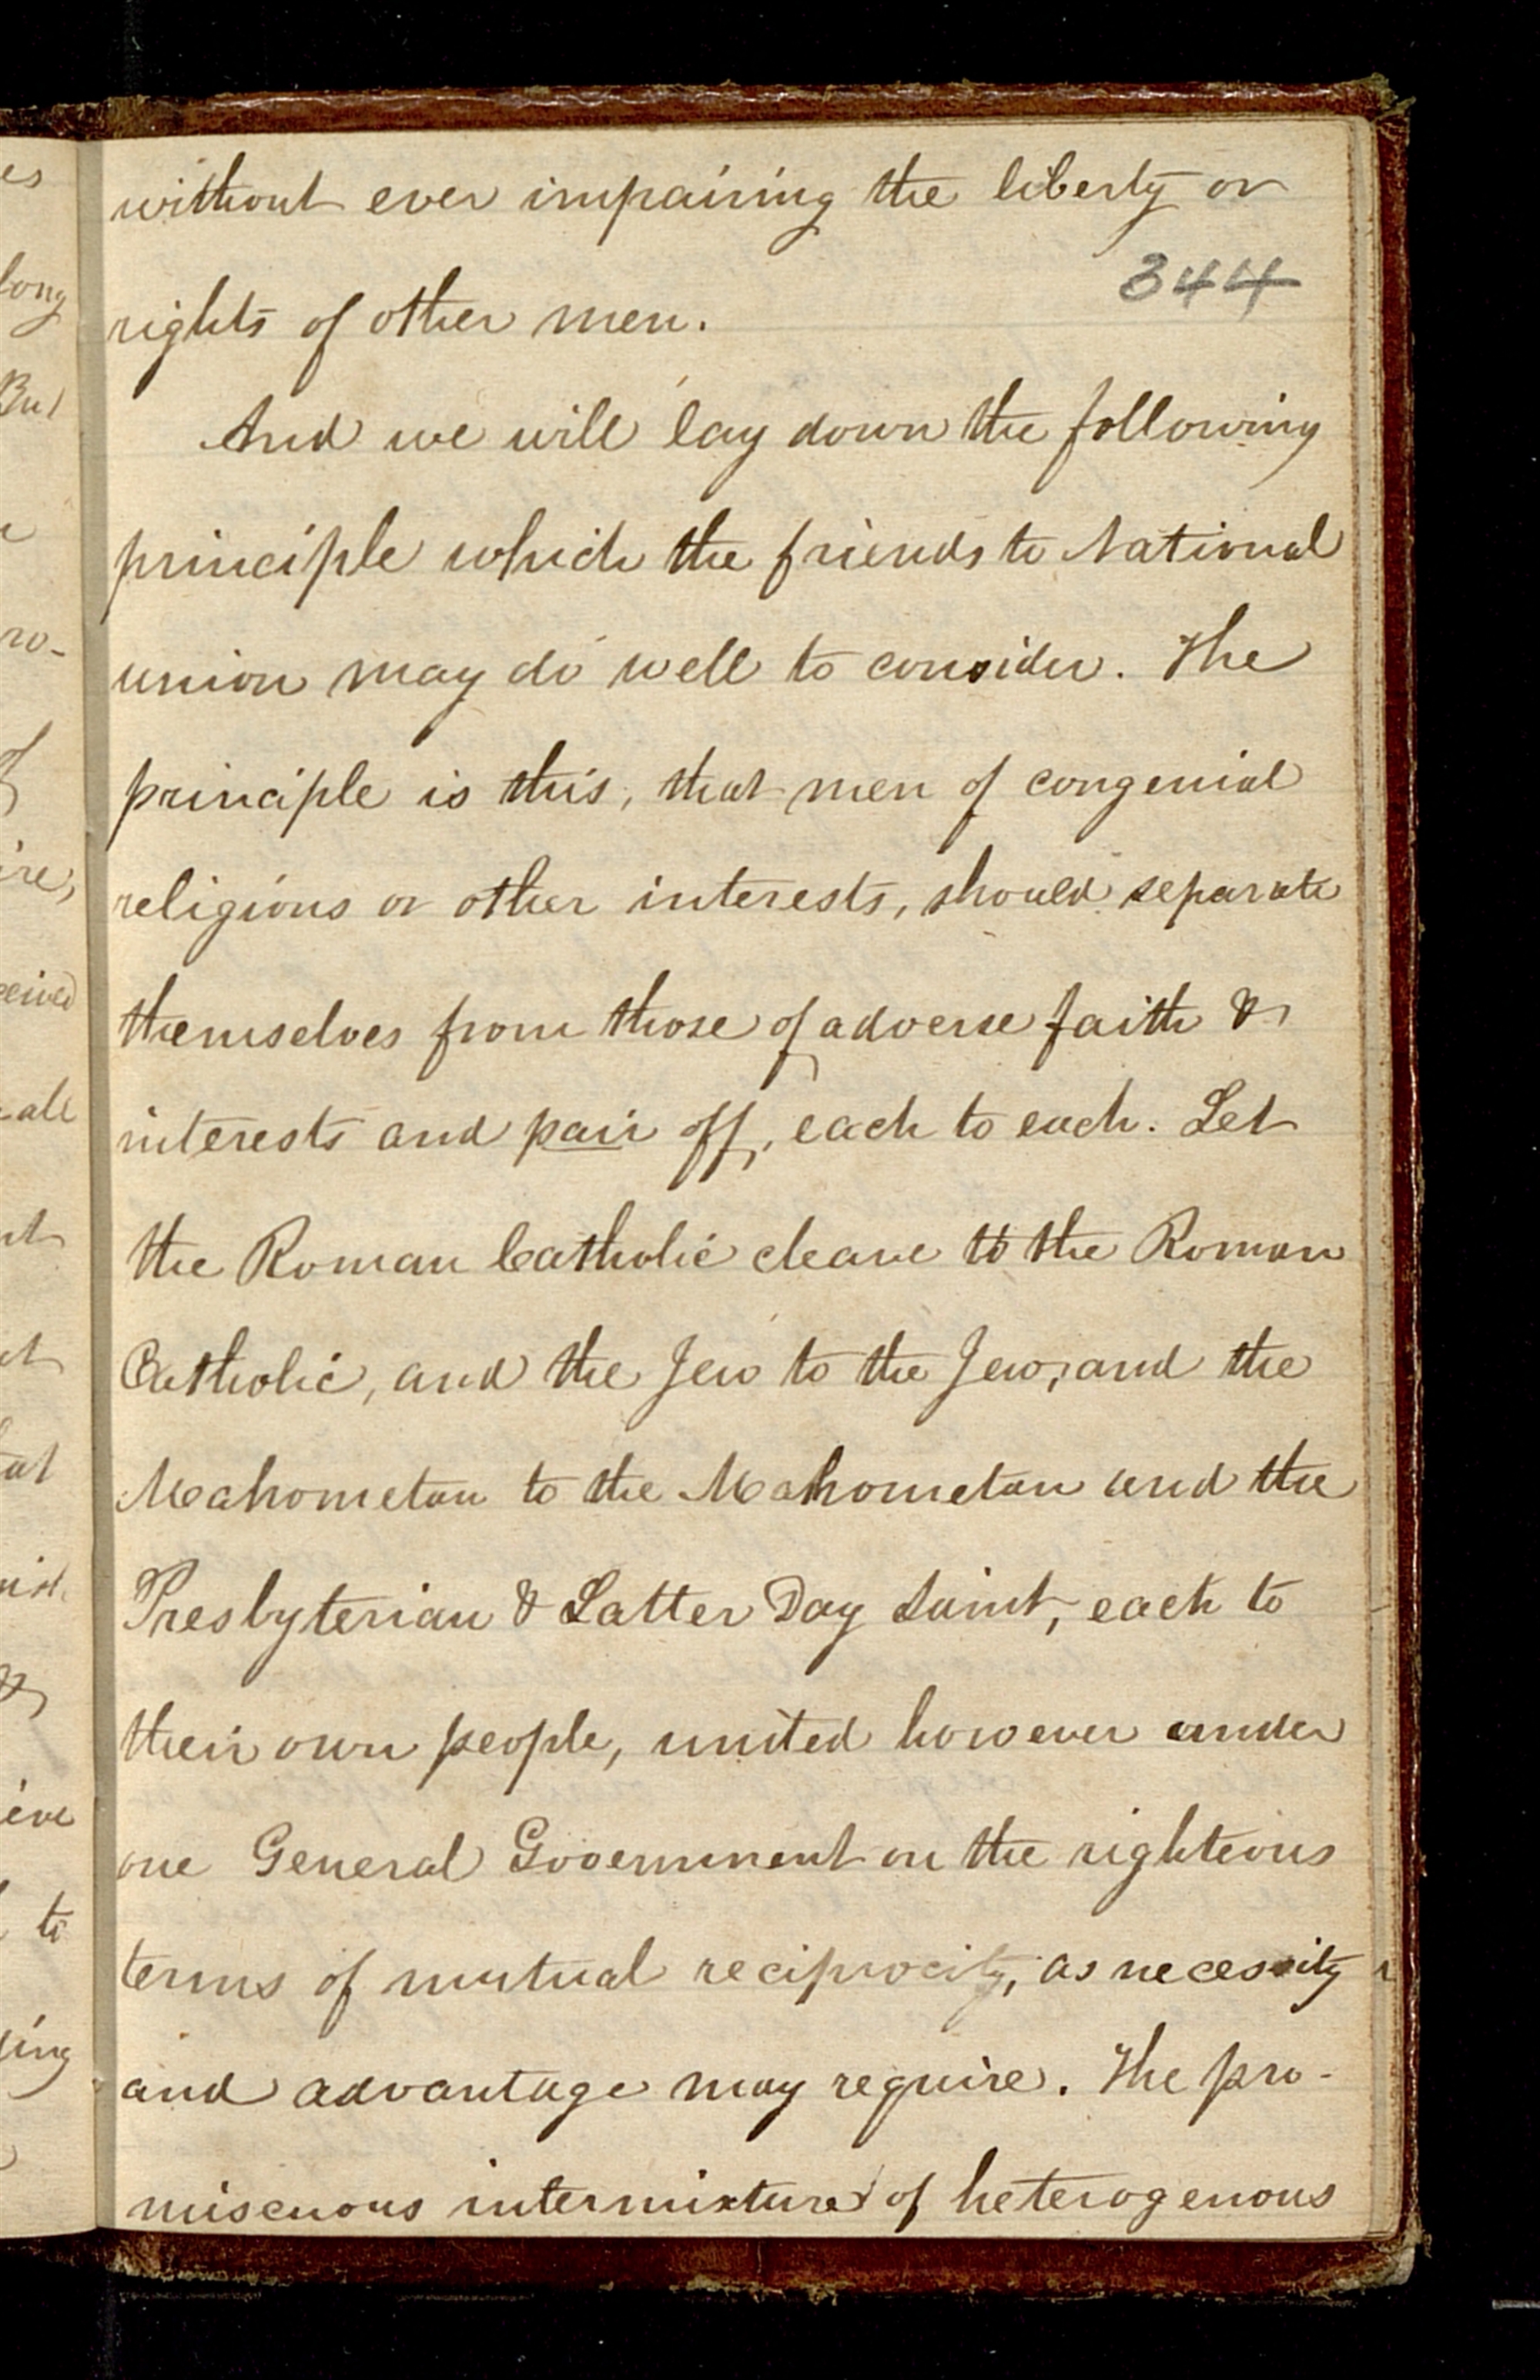 without ever impairing the liberty or
344
rights of other men.
And we will lay down the following
principle which the friends to National
union may do well to consider. The
principle is this, that men of congenial
religious or other interests, should separate
themselves from those of adverse faith &
interests and pair off, each to each. Let
the Roman Catholic cleave to the Roman
Catholic, and the Jew to the Jew, and the
Mahometan to the Mahometan and the
Presbyterian & Latter Day Saint, each to
their own people, united however under
one General Government on the righteous
terms of mutual reciprocity, as necessity
and advantage may require. The pro-
miscuous intermixture of heterogenous